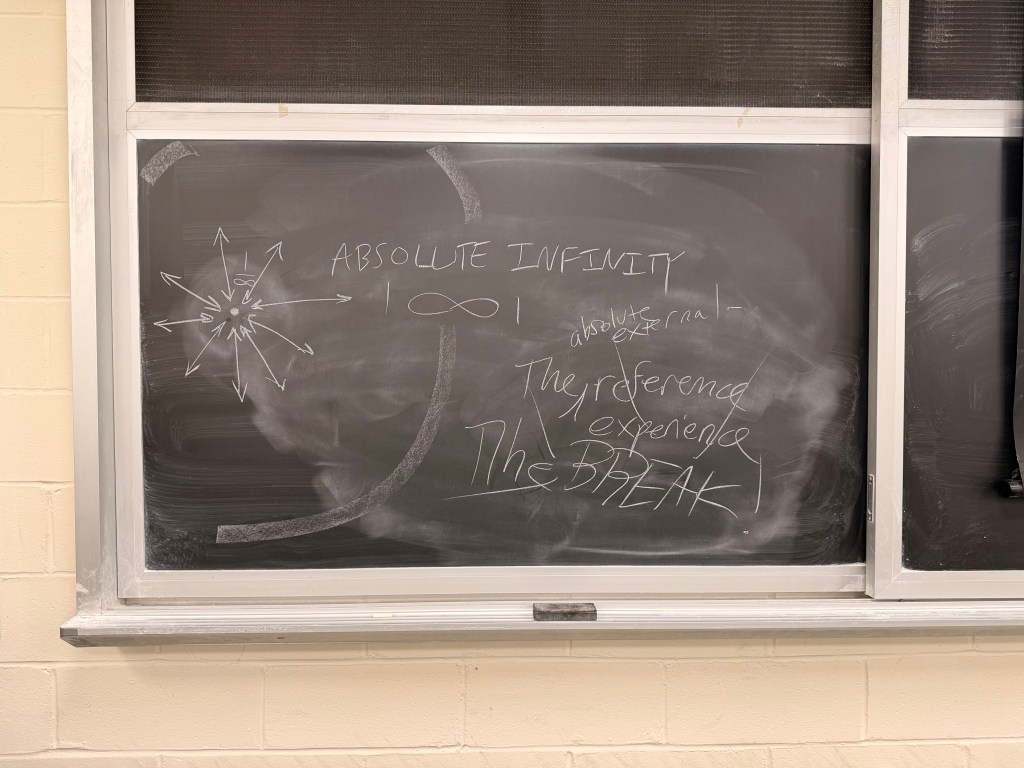 ABSOLUTE INFINITY
|∞|
absolute
external-
They reference
experience
The BREAK!